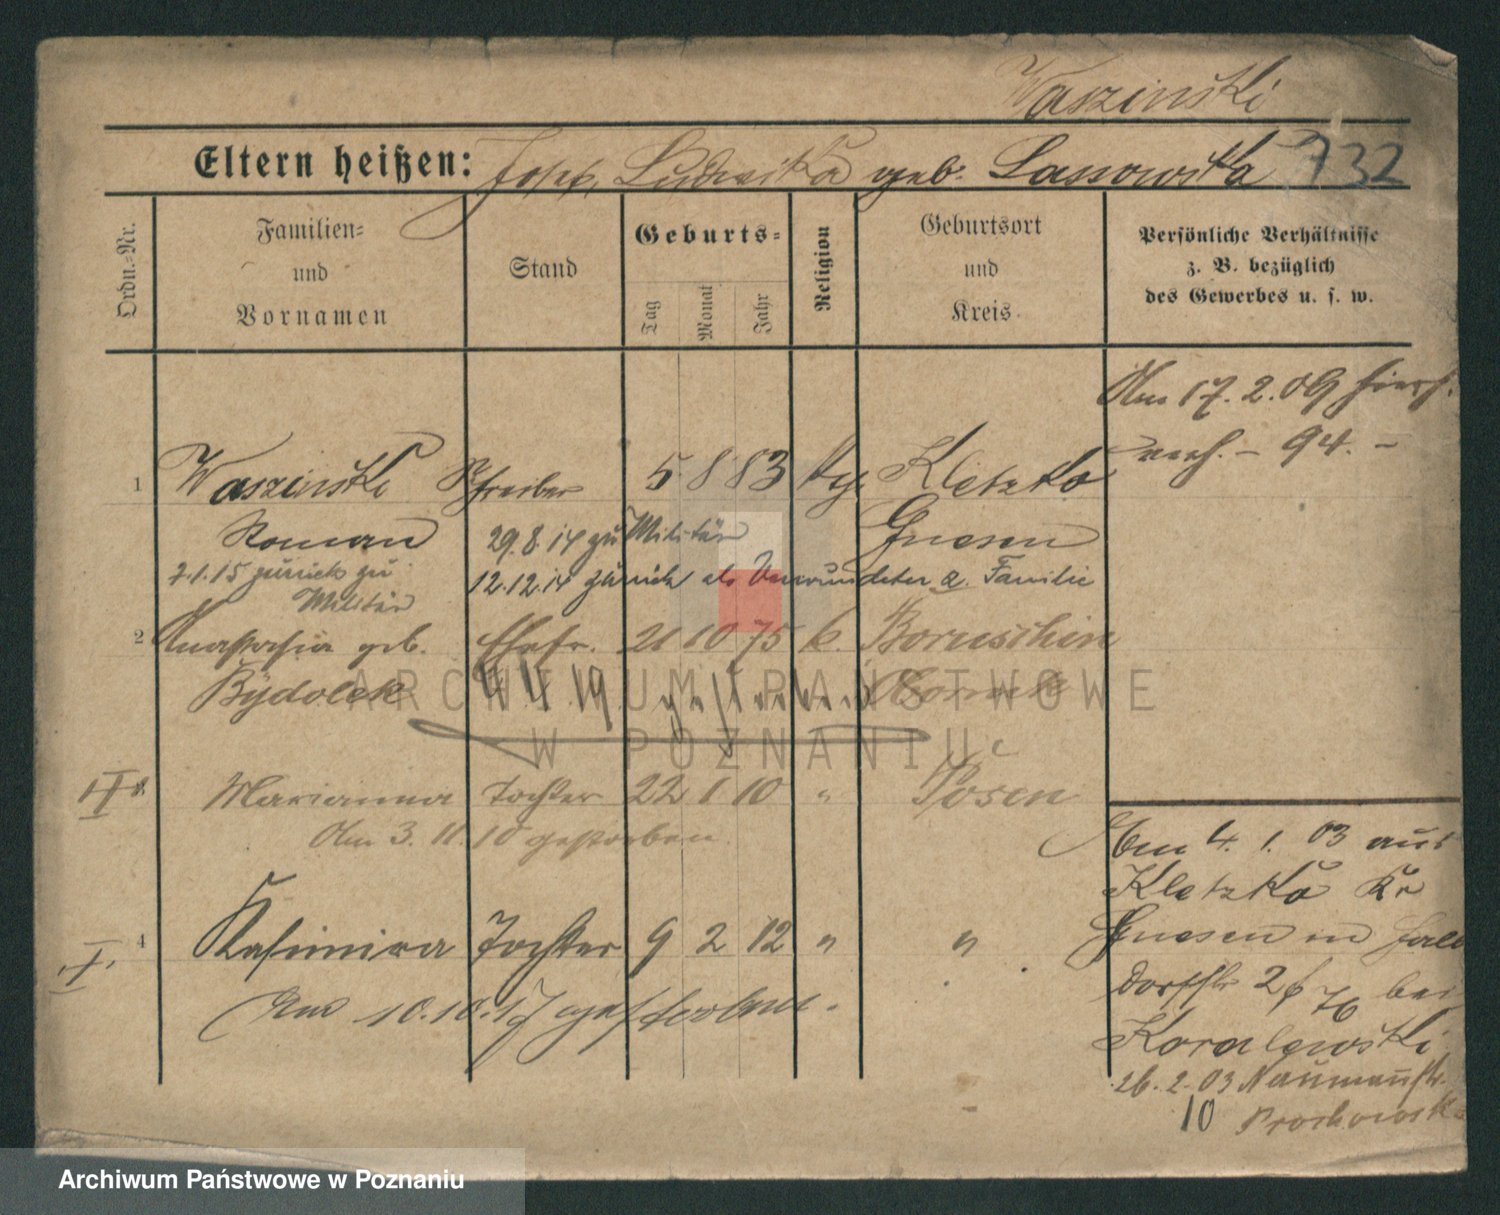 Waszinski
Eltern heißen: Josef, Ludwika geb. Lassowska 732
Ordn.-Nr.
Familien-
und
Vornamen
Stand
Geburts-
Tag
Monat
Jahr
Religion
Geburtsort
und
Kreis.
Persönliche Verhältnisse
z. B. bezüglich
des Gewerbes u. s. w.
Am 17.2.09
verh. – 94. –
1 Waszinski Schreiber 5 8 83 Kletzko
Roman 29.8.14 zu Militär Gnesen
7.1.15 zurück zu 12.12.14 zurück als Verwundeter z. Familie
Militär
2 Anastasia geb. Ehefr. 21 10 75 k. Boruschin
Bydolek 4.4.19 gestorben Obornik
Marianna Tochter 22 1 10 " Posen
Am 3.11.10 gestorben
4 Kasimira Tochter 9 2 12 " "
Am 10.10.17 gestorben.
Am 4. 1. 03 aus
Kletzko Kr
Gnesen in
Dorfstr 26 bei
Koralewski
26.2.03 Naumannstr.
10
ARCHIWUM PAŃSTWOWE
W POZNANIU
Archiwum Państwowe w Poznaniu